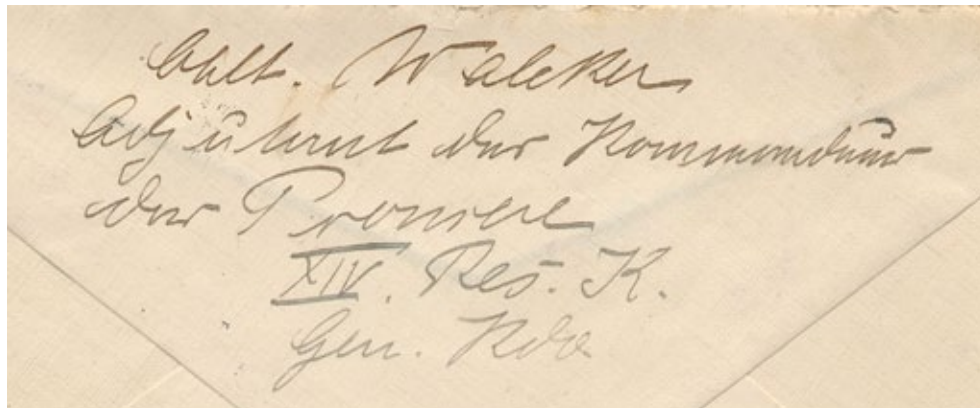 Oblt. Walcker
Adjutant der Kommandeur
der Pioniere
XIV. Res. K.
Gen. Kdo